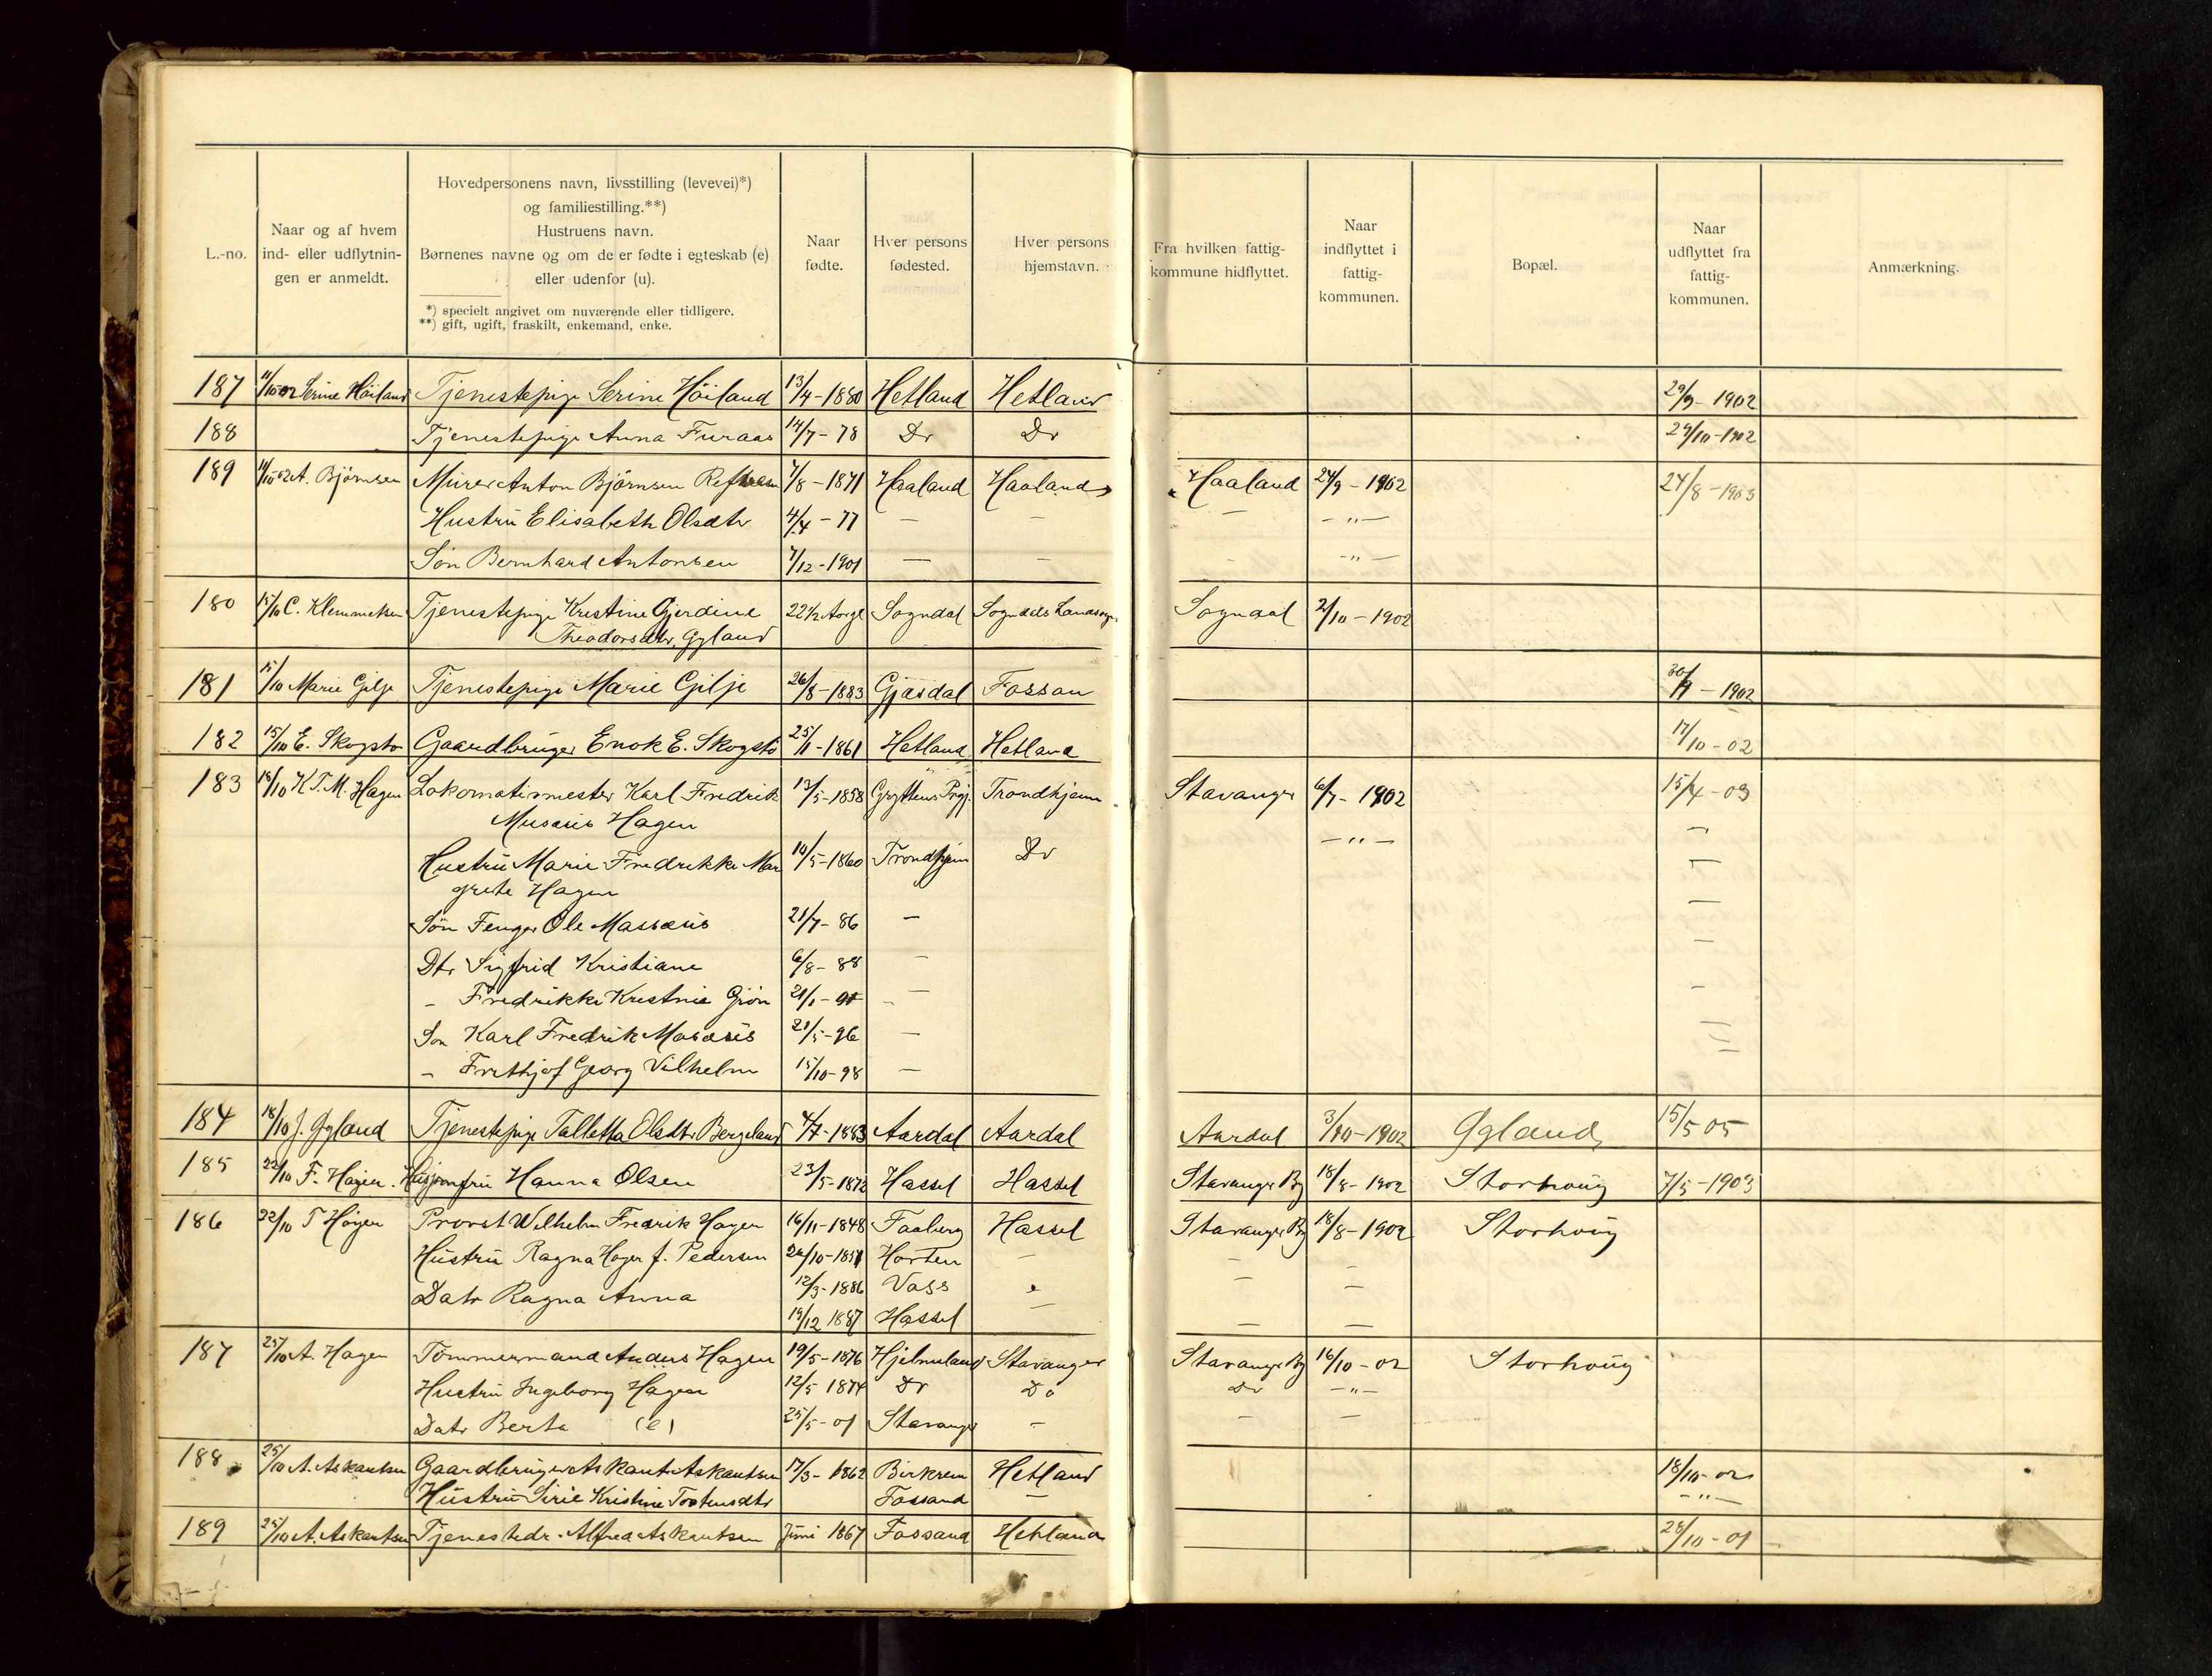 L.-no.
Naar og af hvem
ind- eller udflytnin-
gen er anmeldt.
Hovedpersonens navn, livsstilling (levevei)*)
og familiestilling.**)
Hustruens navn.
Børnenes navne og om de er fødte i egteskab (e)
eller udenfor (u).
*) specielt angivet om nuværende eller tidligere.
**) gift, ugift, fraskilt, enkemand, enke.
Naar
fødte.
Hver persons
fødested.
Hver persons
hjemstavn.
Fra hvilken fattig-
kommune hidflyttet.
Naar
indflyttet i
fattig-
kommunen.
Bopæl.
Naar
udflyttet fra
fattig-
kommunen.
Anmærkning.
187 11/10 02 Serine Höiland Tjenestepige Serine Höiland 13/4-1880 Hetland Hetland 29/9-1902
188 Tjenestepige Anna Furaas 14/7-78 Do Do 29/10-1902
189 11/10 02 A. Björnsen Murer Anton Björnsen 7/8-1871 Haaland Haaland Haaland 24/9-1902 24/8-1903
Hustru Elisabeth Olsdtr 4/4-77 — — — -"-
Sön Bernhard Antonsen 7/12-1901 — — - -"-
180 15/10 C. Klemmetsen Tjenestepige Kristine Gjerdine 22 1/2 Aar gl Sogndal Sogndals Landsogn Sogndal 2/10-1902
Theodorsdtr. Gyland
181 15/10 Marie Gilje Tjenestepige Marie Gilje 26/8-1883 Gjæsdal Fossan 30/9-1902
182 15/10 E. Skogstö Gaardbruger Enok E. Skogstö 25/11-1861 Hetland Hetland 17/10-02
183 18/10 K.F.M. Hagen Lokomotivmester Karl Fredrik 13/5-1858 Gryttens Prgj. Trondhjem Stavanger 6/7-1902 15/4-03
Musæus Hagen -"- —
Hustru Marie Fredrikke Mar 14/5-1860 Trondhjem Do —
grete Hagen
Sön Fenger Ole Massæus 21/7-86 — —
Dtr Sigfrid Kristiane 6/8-88 - —
- Fredrikke Kristine Grön 21/1-91 — -
Sön Karl Fredrik Masæus 21/5-96 — —
- Frithjof Georg Vilhelm 15/10-98 — —
184 18/10 J. Gyland Tjenestepige Talletta Olsdtr Bergeland 4/7-1883 Aardal Aardal Aardal 3/10-1902 Gyland 15/5 05
185 22/10 F. Höyer Husjomfru Hanna Olsen 23/5-1872 Hassel Hassel Stavanger By 18/8-1902 Storhoug 7/5-1903
186 22/10 F Höyer Provst Wilhelm Fredrik Höyer 16/11-1848 Faaberg Hassel Stavanger By 18/8-1902 Storhoug
Hustru Ragna Höyer f. Pedersen 24/10-1851 Horten — — —
Datr Ragna Anna 12/3-1886 Voss — —
19/12 1887 Hassel — — —
187 25/10 A. Hagen Tömmermand Anders Hagen 19/5-1876 Hjelmeland Stavanger Stavanger By 16/10-02 Storhoug
Hustru Ingeborg Hagen 12/5 1874 Do Do Do -"-
Datr Berta (e) 25/5-01 Stavanger — — —
188 25/10 A. Askautsen Gaardbruger Askaut Askautsen 17/3-1862 Birkrem Hetland 18/10-02
Hustru Sirie Kristine Tostensdtr Fossand — -"-
189 25/10 A. Askautsen Tjenestedr. Alfred Askautsen Juni 1867 Fossand Hetland 28/10-01